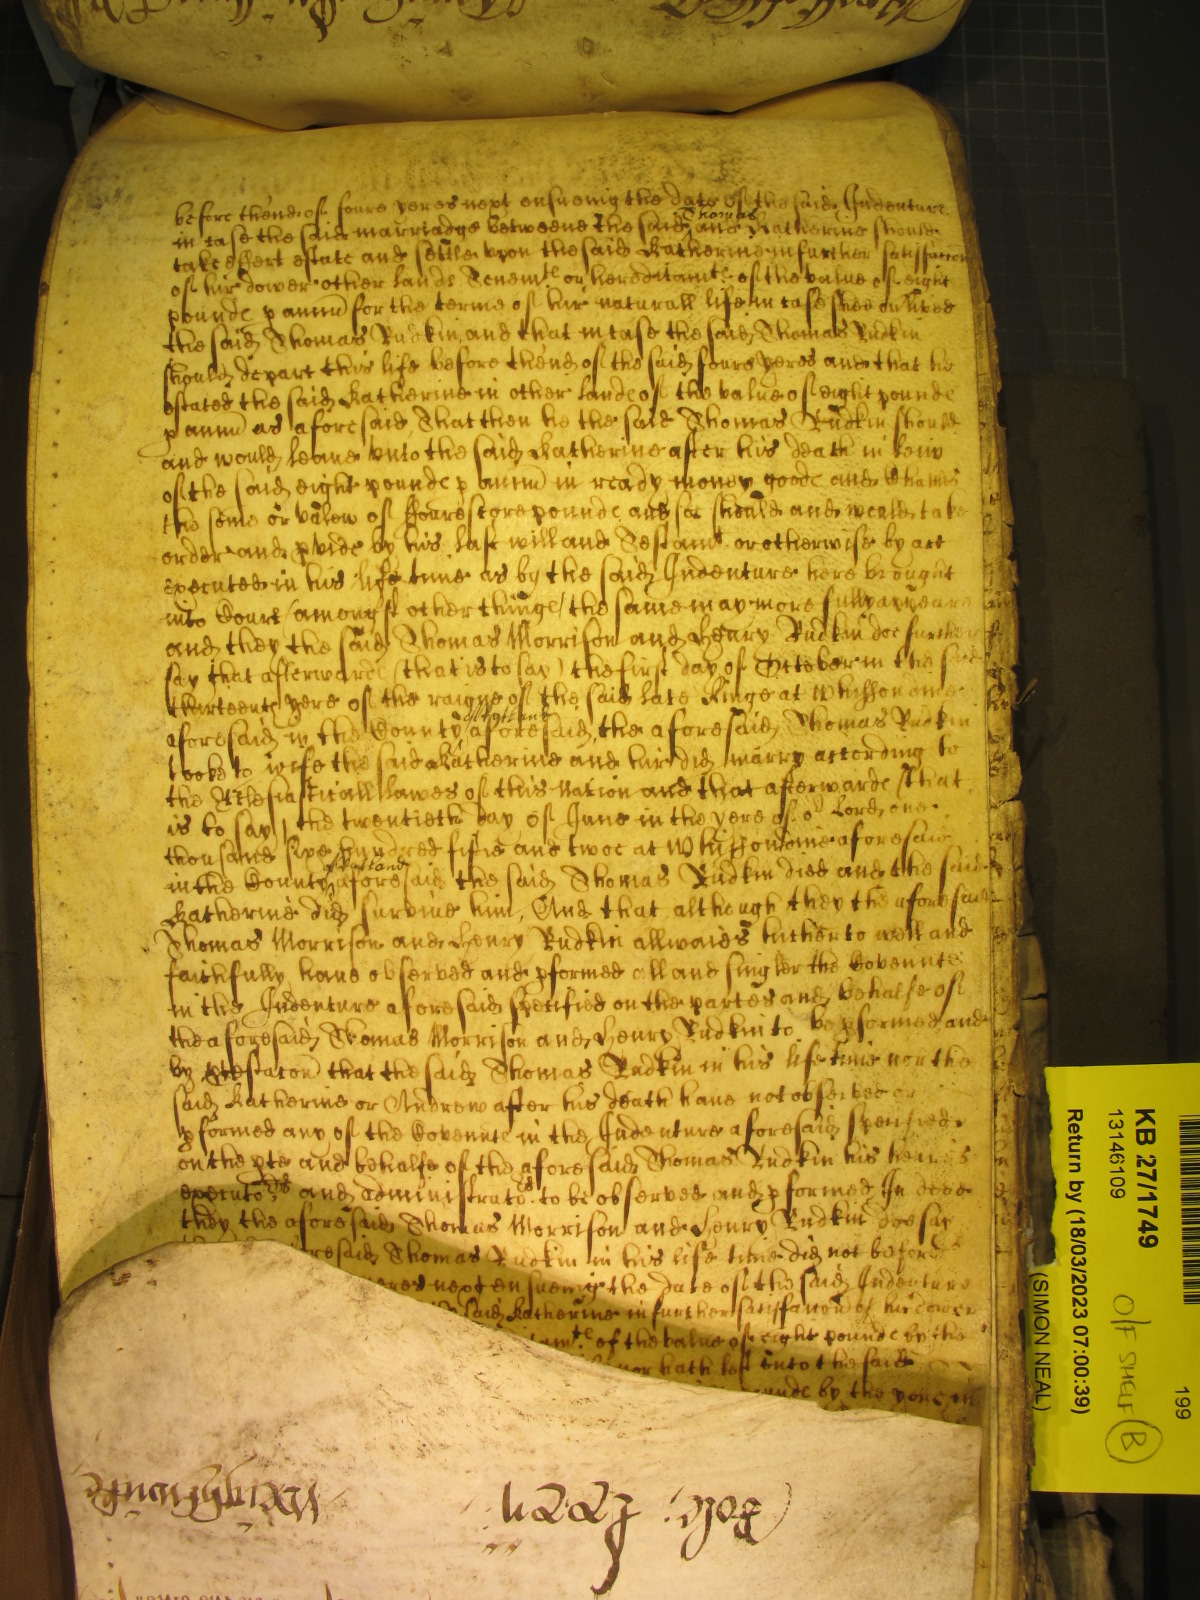 before thend of foure yeres next ensueing the date of the said Indenture
in case the said marriadge betweene the said Thomas and Katherine should
take effect estate and settle upon the said Katherine in further satisfaccon
of hir dower other lands Tenemte or hereditamte of the value of eight
pounde p annu for the terme of hir naturall life in case shee outlived
the said Thomas Rudkin and that in case the said Thomas Rudkin
should depart this life before thend of the said foure yeres and that he
estated the said Katherine in other lande of the value of eight pounde
p annu as aforesaid That then he the said Thomas Rudkin should
and would leave unto the said Katherine after his death in leiw
of the said eight pounde p annu in ready money goode and Chattels
the some or valew of ffourescore pounde and soe should and would take
order and pvide by his last will and Testamt or otherwise by act
executed in his life time as by the said Indenture here brought
into Court (amongst other thinge) the same may more fully appeare
and they the said Thomas Morrison and Henry Rudkin doe further
say that afterwarde (that is to say) the first day of October in the said
thirteenth yere of the raigne of the said late Kinge at Whissondine
aforesaid in the County of Rutland aforesaid, the aforesaid Thomas Rudkin
tooke to wife the said Katherine and hir did marry according to
the Ecclesiasticall lawes of this Nation and that afterwarde (that
is to say) the twentieth day of June in the yere of or Lord one
thousand sixe hundred fiftie and twoe at Whissondine aforesaid
in the County of Rutland aforesaid the said Thomas Rudkin died and the said
Katherine did survive him, And that although they the aforesaid
Thomas Morrison and Henry Rudkin allwaies hitherto well and
faithfully have observed and pformed all and singler the Covennte
in the Indenture aforesaid specified on the partes and behalfe of
the aforesaid Thomas Morrison and Henry Rudkin to be pformed and
by ptestacon that the said Thomas Rudkin in his life time nor the
said Katherine or Andrew after his death have not observed or
pformed any of the Covennte in the Indenture aforesaid specified
on the pte and behalfe of the aforesaid Thomas Rudkin his heires
executors and administrators to be observed and pformed In deed
they the aforesaid Thomas Morrison and Henry Rudkin doe say
aforesaid Thomas Rudkin in his life time did not before
yeres next ensueing the date of the said Indenture
said Katherine in further satisfaccon of hir dower
of the value of eight pounde by the
nor hath left unto the said
pounde by the yere in
KB 27/1749
13146109
Return by (18/03/2023 07:00:39)
(SIMON NEAL)
199
O/F SHELF B